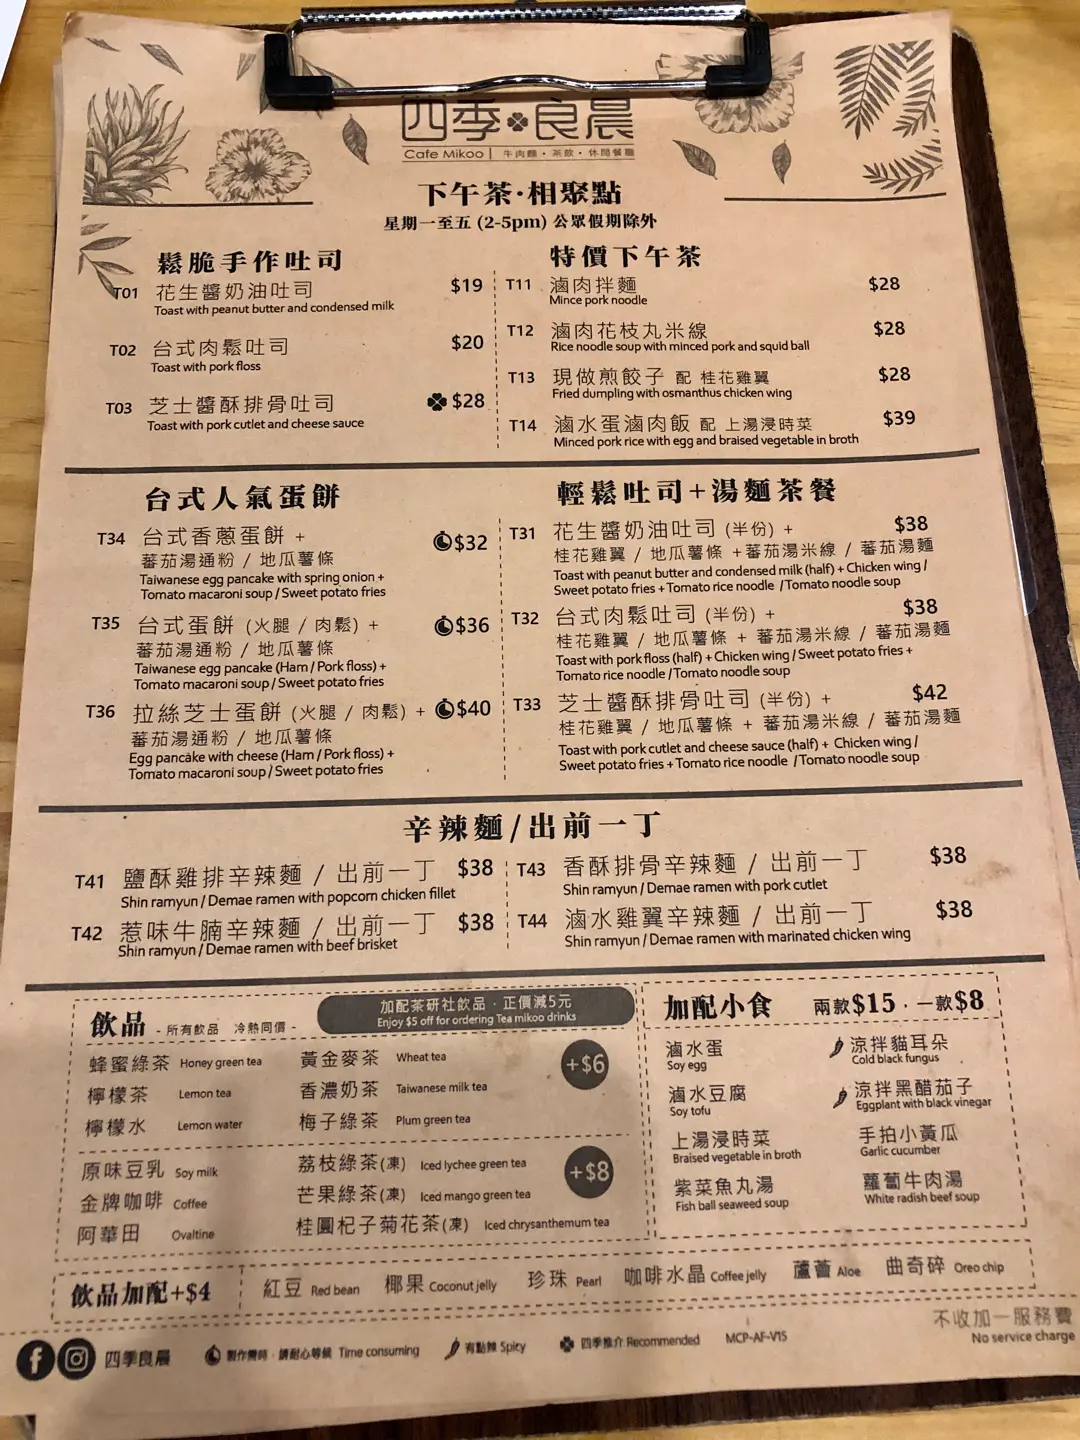 四季良晨
Cafe Mikoo | 牛肉麵・茶飲・休閒餐廳
下午茶·相聚點
星期一至五 (2-5pm) 公眾假期除外
鬆脆手作吐司
T01 花生醬奶油吐司 $19
Toast with peanut butter and condensed milk
T02 台式肉鬆吐司 $20
Toast with pork floss
T03 芝士醬酥排骨吐司 $28
Toast with pork cutlet and cheese sauce
特價下午茶
T11 滷肉拌麵 $28
Mince pork noodle
T12 滷肉花枝丸米線 $28
Rice noodle soup with minced pork and squid ball
T13 現做煎餃子 配 桂花雞翼 $28
Fried dumpling with osmanthus chicken wing
T14 滷水蛋滷肉飯 配 上湯浸時菜 $39
Minced pork rice with egg and braised vegetable in broth
台式人氣蛋餅
T34 台式香蔥蛋餅 + $32
蕃茄湯通粉 / 地瓜薯條
Taiwanese egg pancake with spring onion +
Tomato macaroni soup / Sweet potato fries
T35 台式蛋餅 (火腿 / 肉鬆) + $36
蕃茄湯通粉 / 地瓜薯條
Taiwanese egg pancake (Ham / Pork floss) +
Tomato macaroni soup / Sweet potato fries
T36 拉絲芝士蛋餅 (火腿 / 肉鬆) + $40
蕃茄湯通粉 / 地瓜薯條
Egg pancake with cheese (Ham / Pork floss) +
Tomato macaroni soup / Sweet potato fries
輕鬆吐司+湯麵茶餐
T31 花生醬奶油吐司 (半份) + $38
桂花雞翼 / 地瓜薯條 + 蕃茄湯米線 / 蕃茄湯麵
Toast with peanut butter and condensed milk (half) + Chicken wing /
Sweet potato fries + Tomato rice noodle / Tomato noodle soup
T32 台式肉鬆吐司 (半份) + $38
桂花雞翼 / 地瓜薯條 + 蕃茄湯米線 / 蕃茄湯麵
Toast with pork floss (half) + Chicken wing / Sweet potato fries +
Tomato rice noodle / Tomato noodle soup
T33 芝士醬酥排骨吐司 (半份) + $42
桂花雞翼 / 地瓜薯條 + 蕃茄湯米線 / 蕃茄湯麵
Toast with pork cutlet and cheese sauce (half) + Chicken wing /
Sweet potato fries + Tomato rice noodle / Tomato noodle soup
辛辣麵/出前一丁
T41 鹽酥雞排辛辣麵 / 出前一丁 $38
Shin ramyun / Demae ramen with popcorn chicken fillet
T42 惹味牛腩辛辣麵 / 出前一丁 $38
Shin ramyun / Demae ramen with beef brisket
T43 香酥排骨辛辣麵 / 出前一丁 $38
Shin ramyun / Demae ramen with pork cutlet
T44 滷水雞翼辛辣麵 / 出前一丁 $38
Shin ramyun / Demae ramen with marinated chicken wing
飲品 - 所有飲品 冷熱同價 -
加配茶研社飲品 · 正價減5元
Enjoy $5 off for ordering Tea mikoo drinks
蜂蜜綠茶 Honey green tea
檸檬茶 Lemon tea
檸檬水 Lemon water
黃金麥茶 Wheat tea
香濃奶茶 Taiwanese milk tea
梅子綠茶 Plum green tea
+$6
原味豆乳 Soy milk
金牌咖啡 Coffee
阿華田 Ovaltine
荔枝綠茶(凍) Iced lychee green tea
芒果綠茶(凍) Iced mango green tea
桂圓杞子菊花茶(凍) Iced chrysanthemum tea
+$8
加配小食 兩款$15 · 一款$8
滷水蛋
Soy egg
滷水豆腐
Soy tofu
上湯浸時菜
Braised vegetable in broth
紫菜魚丸湯
Fish ball seaweed soup
涼拌貓耳朵
Cold black fungus
涼拌黑醋茄子
Eggplant with black vinegar
手拍小黃瓜
Garlic cucumber
蘿蔔牛肉湯
White radish beef soup
飲品加配+$4
紅豆 Red bean 椰果 Coconut jelly 珍珠 Pearl 咖啡水晶 Coffee jelly 蘆薈 Aloe 曲奇碎 Oreo chip
不收加一服務費
No service charge
四季良晨 製作需時 · 請耐心等候 Time consuming 有點辣 Spicy 四季推介 Recommended MCP-AF-V15